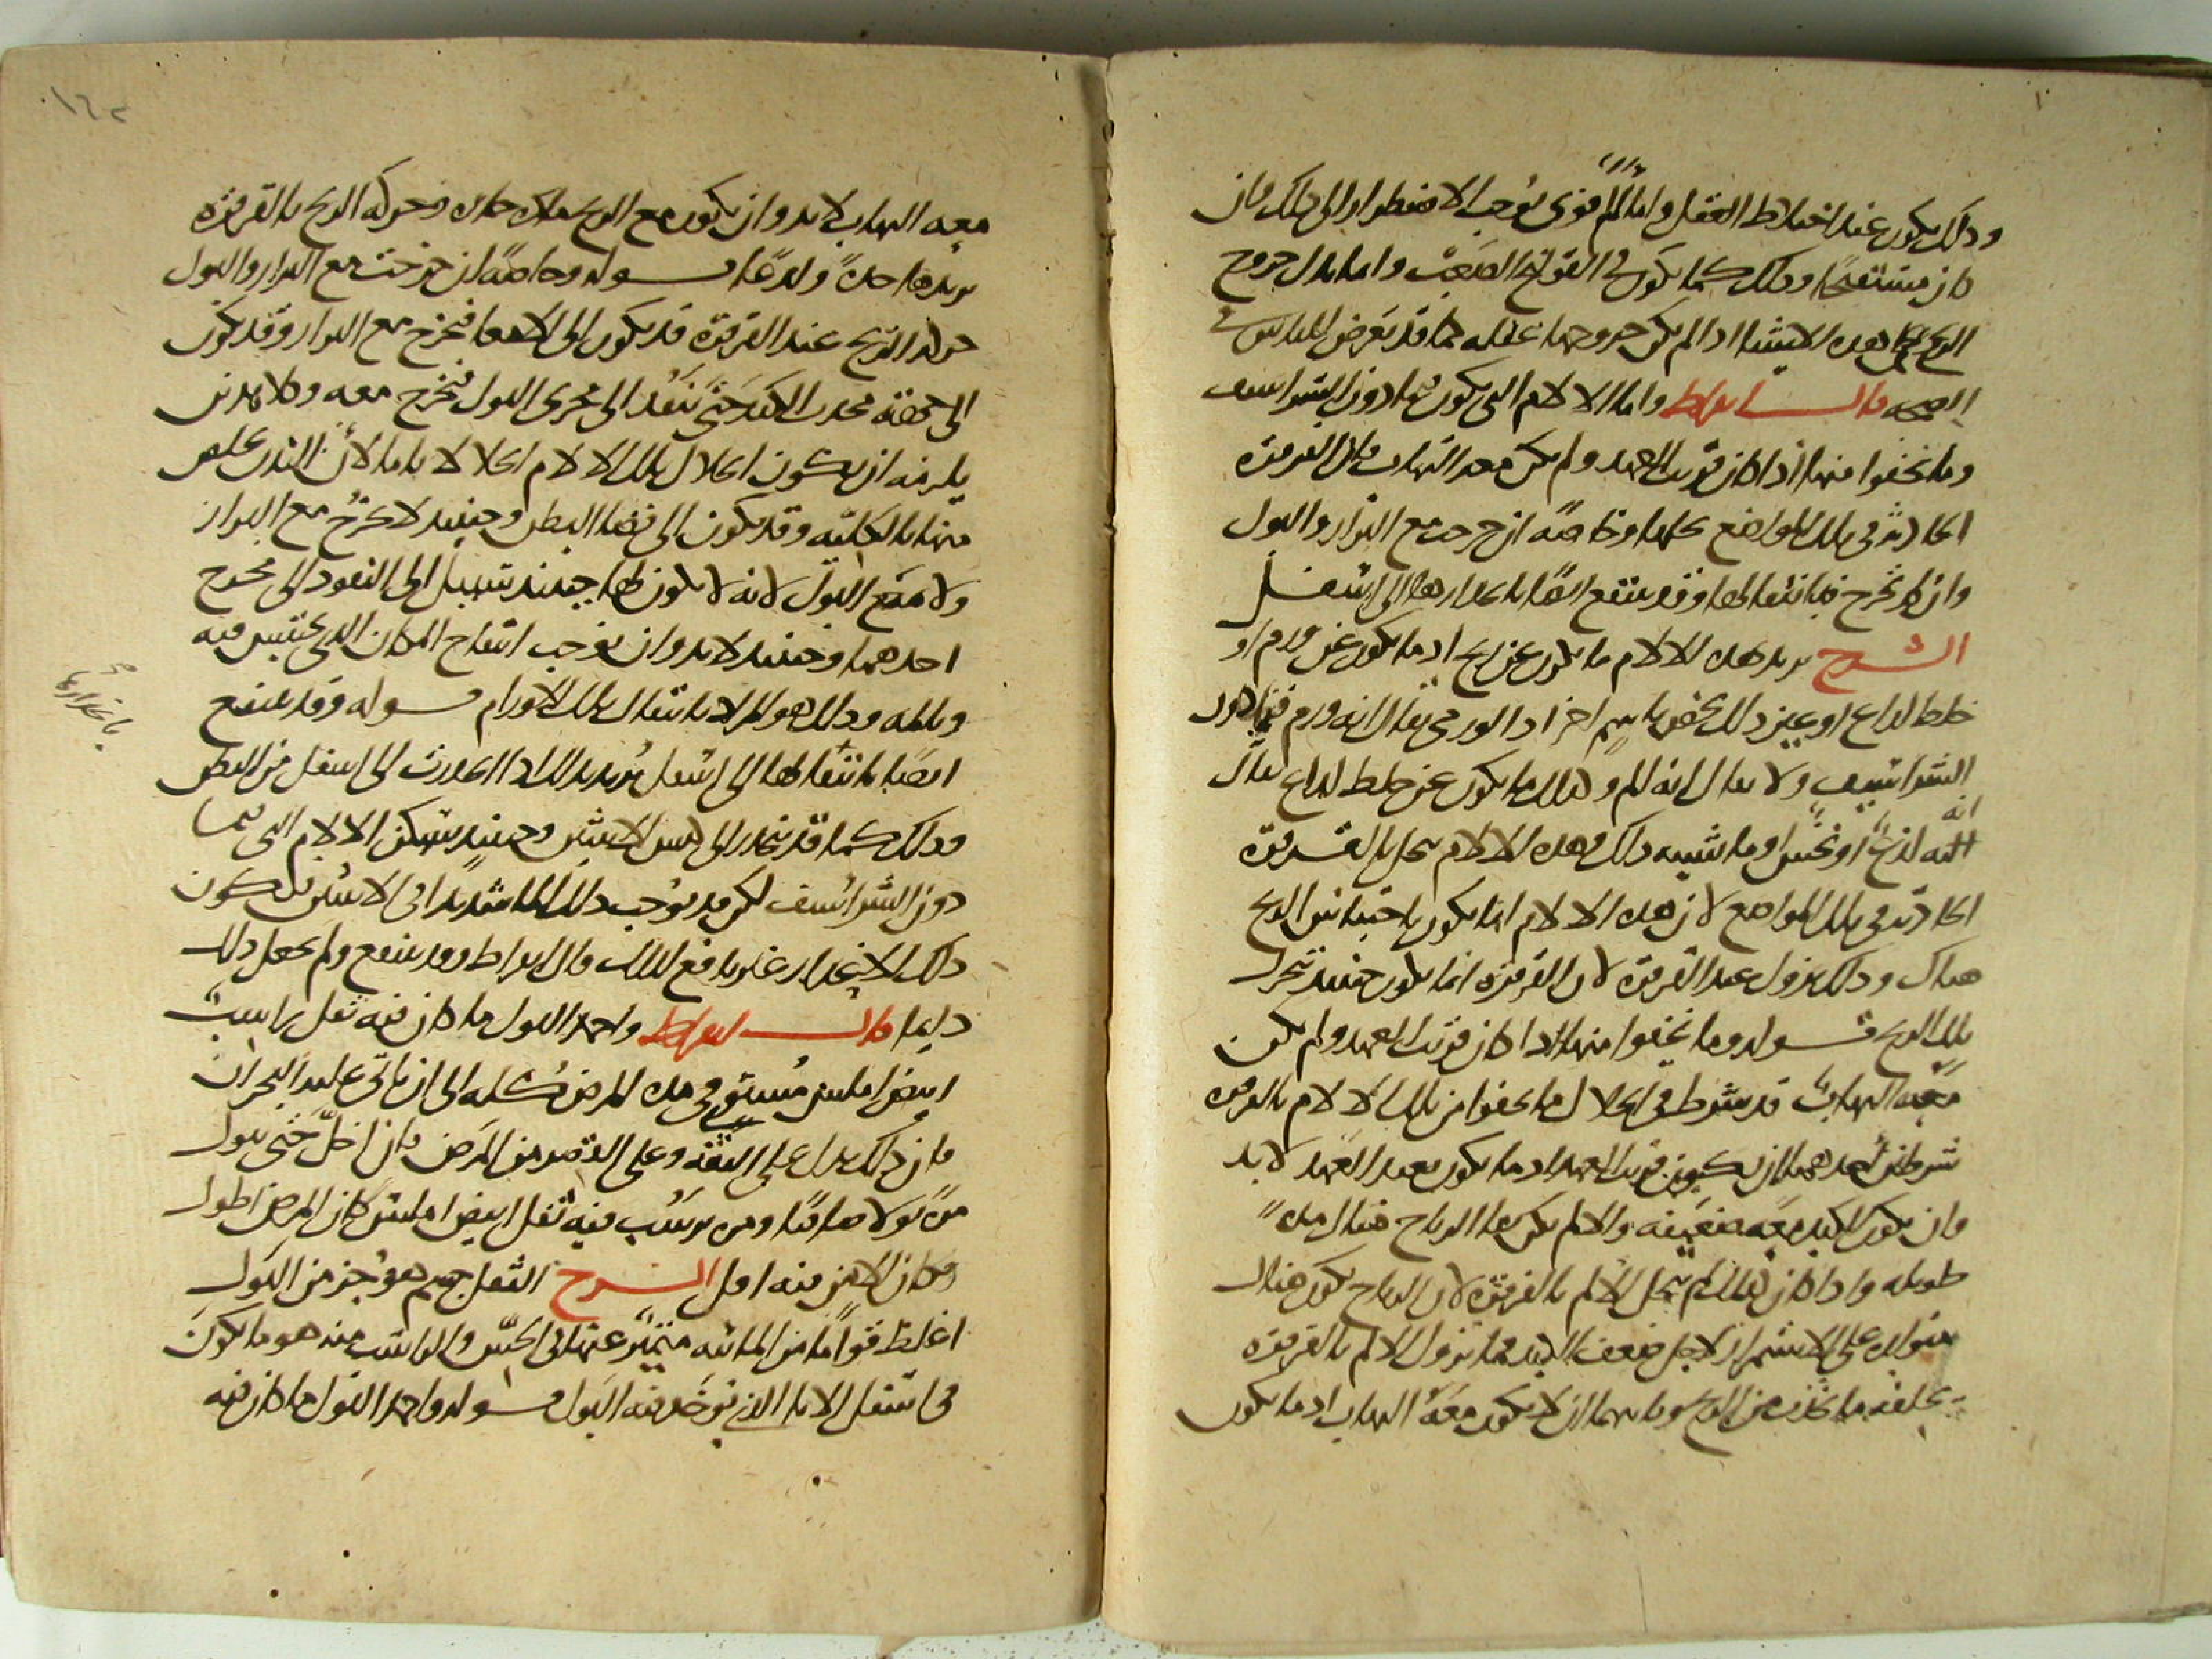 وذلك يكون عند اختلاط العقل واما لألم قوى يوجب الاضطرار الى ذلك فان
كان مستقبحا وذلك كما يكون فى القولنج الصعب واما بدل خروج
الريح على هذه الاشيا اذا لم يكن خروجها غفله مما قد يعرض للناس فى
الصحه قال ابقراط واما الالام التى تكون فيما دون الشراسيف
وما نحفوا منها اذا كان قريب العهد ولم يكن معه التهاب فان القرقرة
الحادثة فى تلك المواضع تحلها وخاصة ان خرجت مع البراز والبول
وان لم تخرج فبانتقالها وقد ينتفع ايضا بانحدارها الى اسفل
الشرح يريد بهذه الالام ما يكون عن ريح اذ ما يكون عن ورم او
خلط لداع او غير ذلك يخص باسم اخر اذ الورمى يقال انه ورم فيما دون
الشراسيف ولا يقال انه الم وكذلك ما يكون عن خلط لداع يقال
انه
انه لذع او نخس او ما شبيه ذلك وهذه الالام تحل بالقرقرة
الحادثة فى تلك المواضع لان هذه الالام انما يكون باحتباس الريح
هناك وذلك يزول عند القرقرة لان القرقرة انما يكون حينئذ تحرك
تلك الريح قوله وما نحفوا منها اذا كان قريب العهد ولم يكن
معه التهاب قد يشرط فى انحلال ما نحفوا من تلك الالام بالقرقرة
شرطين احدهما ان يكون قريب العهد اذ ما يكون بعيد العهد لا بد
وان يكون الكبد معه ضعيفه والا لم يكن بقا الرياح هناك مدة
طويله واذا كان كذلك لم ينحل الالم بالقرقرة لان الرياح تكون هناك
متولده على الاستمرار لاجل ضعف الكبد فما يزول الالم بالقرقرة
يخلفه ما يحدث من الريح وثانيهما ان لا يكون معه التهاب اذ ما يكون
معه التهاب لا بد وان يكون مع الريح مادة حادة فحركة الريح بالقرقرة
يزيدها حدة ولذعا قوله وخاصة ان خرجت مع البراز والبول
حركة الريح عند القرقرة قد يكون الى الامعا فتخرج مع البراز وقد يكون
الى جهة محدب الكبد حتى تنفد الى مجرى البول فتخرج معه وكلا هذين
يلزمه ان يكون انحلال تلك الالام انحلالا تاما لان البدن يخلص
منها بالكلية وقد يكون الى فضا البطن وحينئذ لا تخرج مع البراز
ولا مع البول لانه لا يكون لها حينئذ سبيل الى النفوذ الى مخرج
احدهما وحينئذ لا بد وان يوجب انتفاخ المكان الذى يحتبس فيه
وتالمه وذلك هو المراد بانتقال تلك الاورام قوله وقد ينتفع
بانحدارها صح
ايضا بانتقالها الى اسفل يريد بذلك اذا انحدرت الى اسفل من البطن
وذلك كما قد ينحدر الى كيس الانثيين وحينئذ يسكن الالام التى فيما
دون الشراسيف لكن قد يوجب ذلك الما شديدا فى الانثيين فلا يكون
ذلك الانحدار غير نافع لذلك قال ابقراط وقد ينتفع ولم يجعل ذلك
دايما قال ابقراط واحمد البول ما كان فيه ثفل راسب
ابيض املس مستو فى مدة المرض كله الى ان ياتى عليه البحران
فان ذلك يدل على الثقة وعلى القصر من المرض فان اخل حتى يبول
مرة بولا صافيا ومرة يرسب فيه ثفل ابيض املس كان المرض اطول
وكان الامن فيه اقل الشرح الثفل جسم هو جز من البول
اغلظ قواما من المائيه متميز عنها فى الحس والراسب منه هو ما يكون
فى اسفل الانا الذى يوخذ فيه البول قوله واحمد البول ما كان فيه